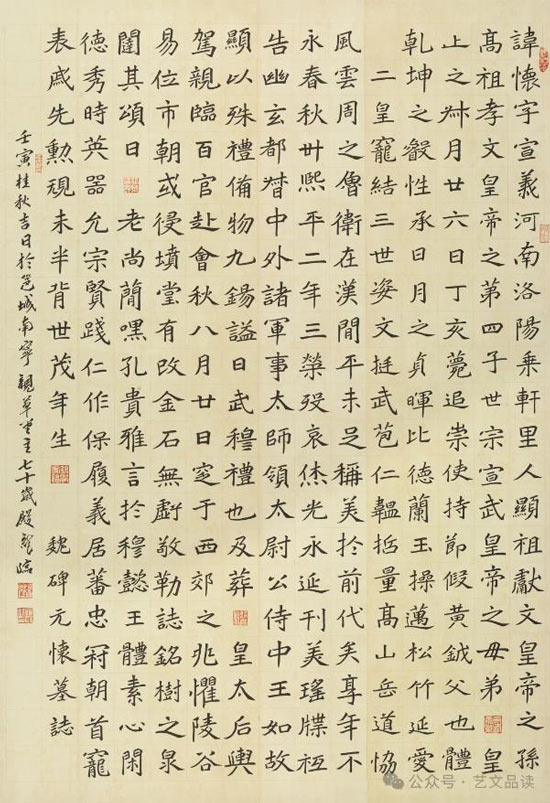 諱懷字宣義河南洛陽乘軒里人顯祖獻文皇帝之孫
高祖孝文皇帝之第四子世宗宣武皇帝之母弟 皇
上之尗月廿六日丁亥薨追崇使持節假黃鉞父也體
乾坤之叡性承日月之貞暉比德蘭玉操邁松竹延愛
二皇寵結三世姿文挺武苞仁韞括量高山岳道協
風雲周之魯衛在漢閒平未足稱美於前代矣享年不
永春秋卅熙平二年三榮歿哀烋光永延刊美瑤牒祗
告幽玄都督中外諸軍事太師領太尉公侍中王如故
顯以殊禮備物九錫謚曰武穆禮也及葬 皇太后輿
駕親臨百官赴會秋八月廿日窆于西郊之兆懼陵谷
易位市朝或侵墳堂有改金石無虧敬勒誌銘樹之泉
闥其頌曰 老尚簡嘿孔貴雅言於穆懿王體素心閑
德秀時英器允宗賢踐仁作保履義居蕃忠冠朝首寵
表戚先勳規未半背世茂年生 魏碑元懷墓誌
壬寅桂秋吉日於邕城南寧親草堂主七十歲殷龍臨
公众号·艺文品读